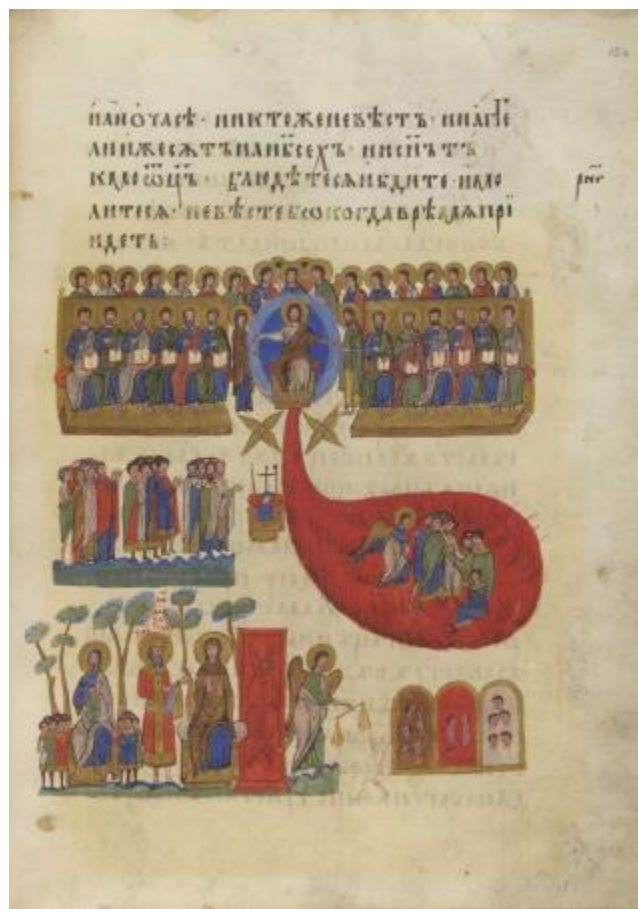 или о часѣ · никтоже не вѣстъ · ни аг҃ге
ли иже сѫтъ на нб҃сехъ · ни сн҃ъ тъ
кмо ѡц҃ъ · блюдѣтесѧ и бдите · и мо
литесѧ · не вѣсте бѡ когда врѣмѧ прі
идеть ·